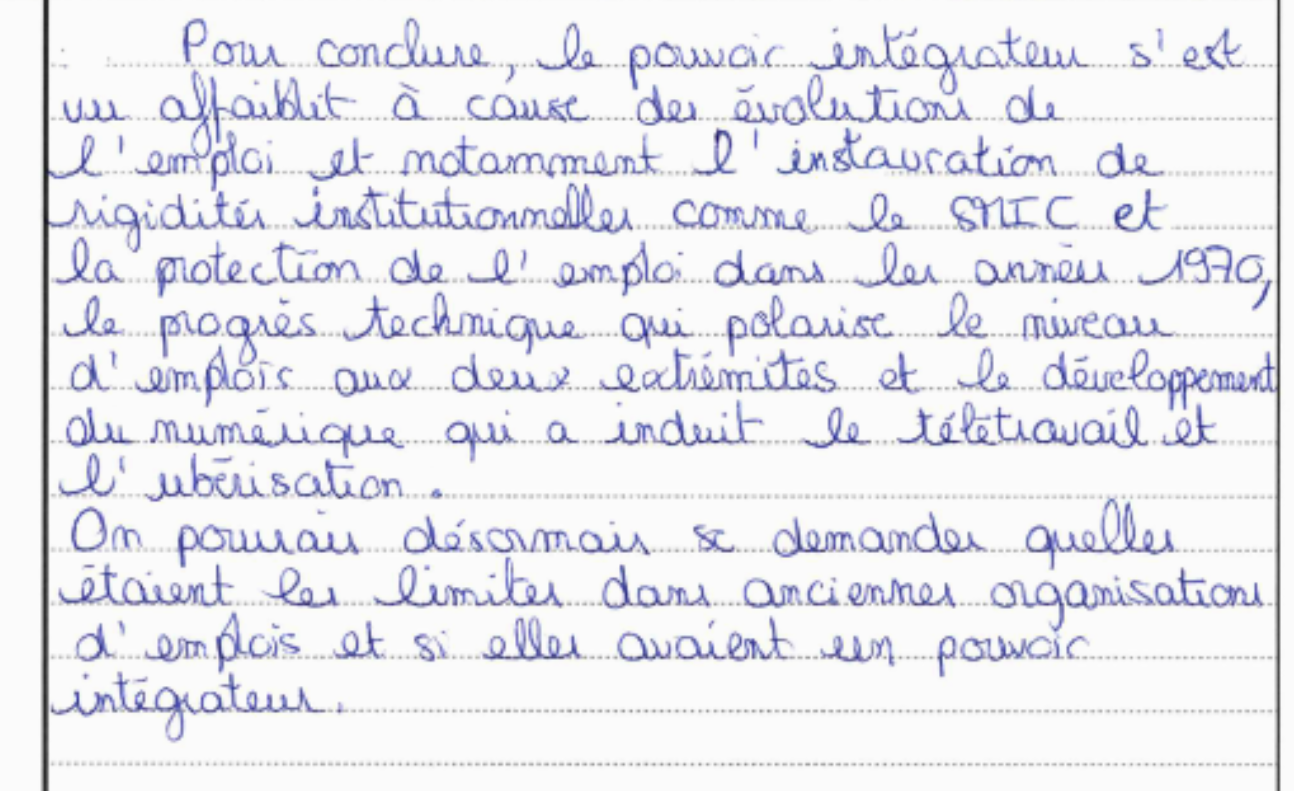 Pour conclure, le pouvoir intégrateur s'est
vu affaiblit à cause des évolutions de
l'emploi et notamment l'instauration de
rigidités institutionnelles comme le SMIC et
la protection de l'emploi dans les années 1970,
le progrès technique qui polarise le niveau
d'emplois aux deux extrémités et le développement
du numérique qui a induit le télétravail et
l'ubérisation.
On pourrais désormais se demander quelles
étaient les limites dans anciennes organisations
d'emplois et si elles avaient un pouvoir
intégrateur.